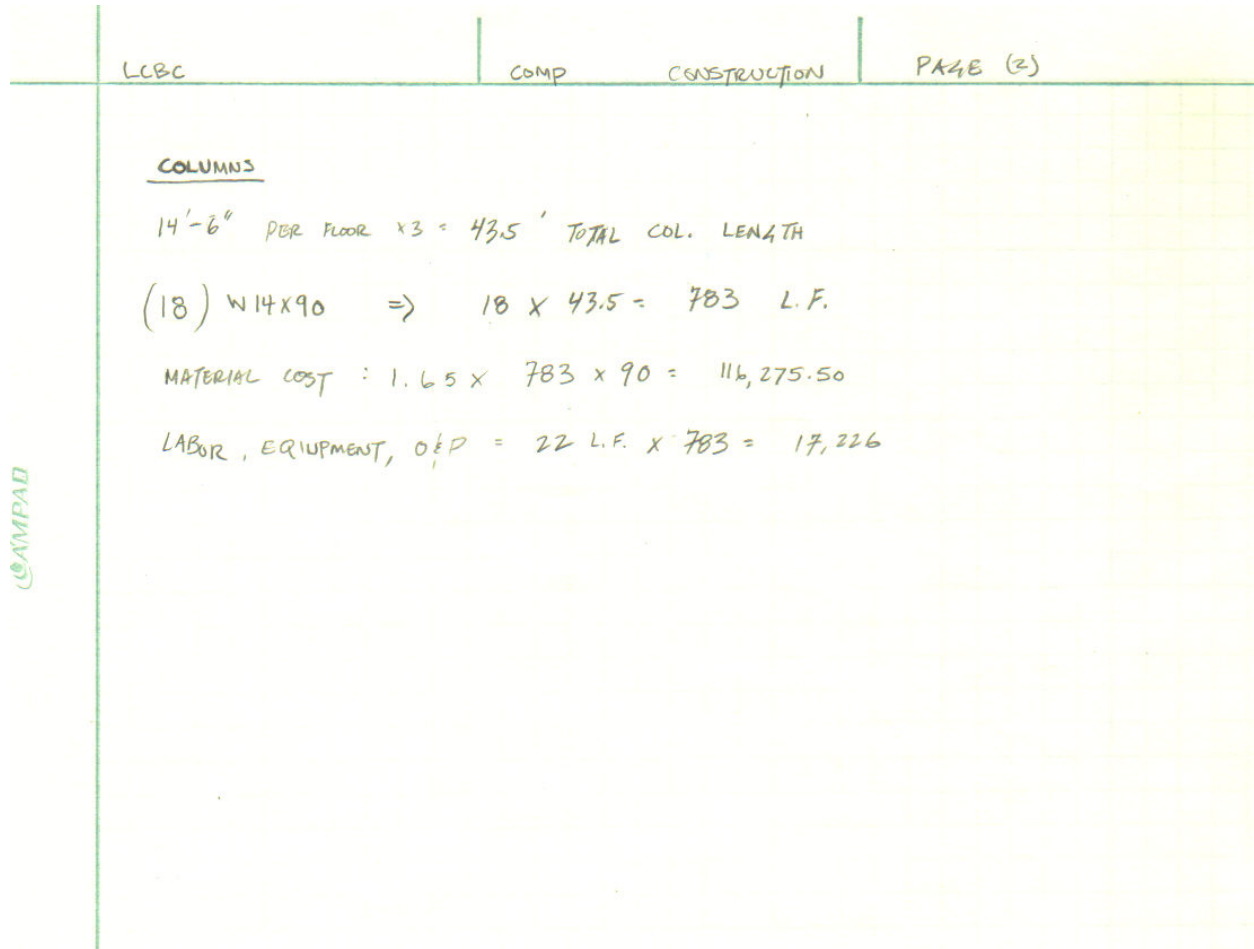 LCBC COMP CONSTRUCTION PAGE (2)
COLUMNS
14'-6" PER FLOOR x3 = 43.5' TOTAL COL. LENGTH
(18) W14x90 => 18 x 43.5 = 783 L.F.
MATERIAL COST : 1.65 x 783 x 90 = 116,275.50
LABOR, EQIUPMENT, O&P = 22 L.F. x 783 = 17,226
AMPAD